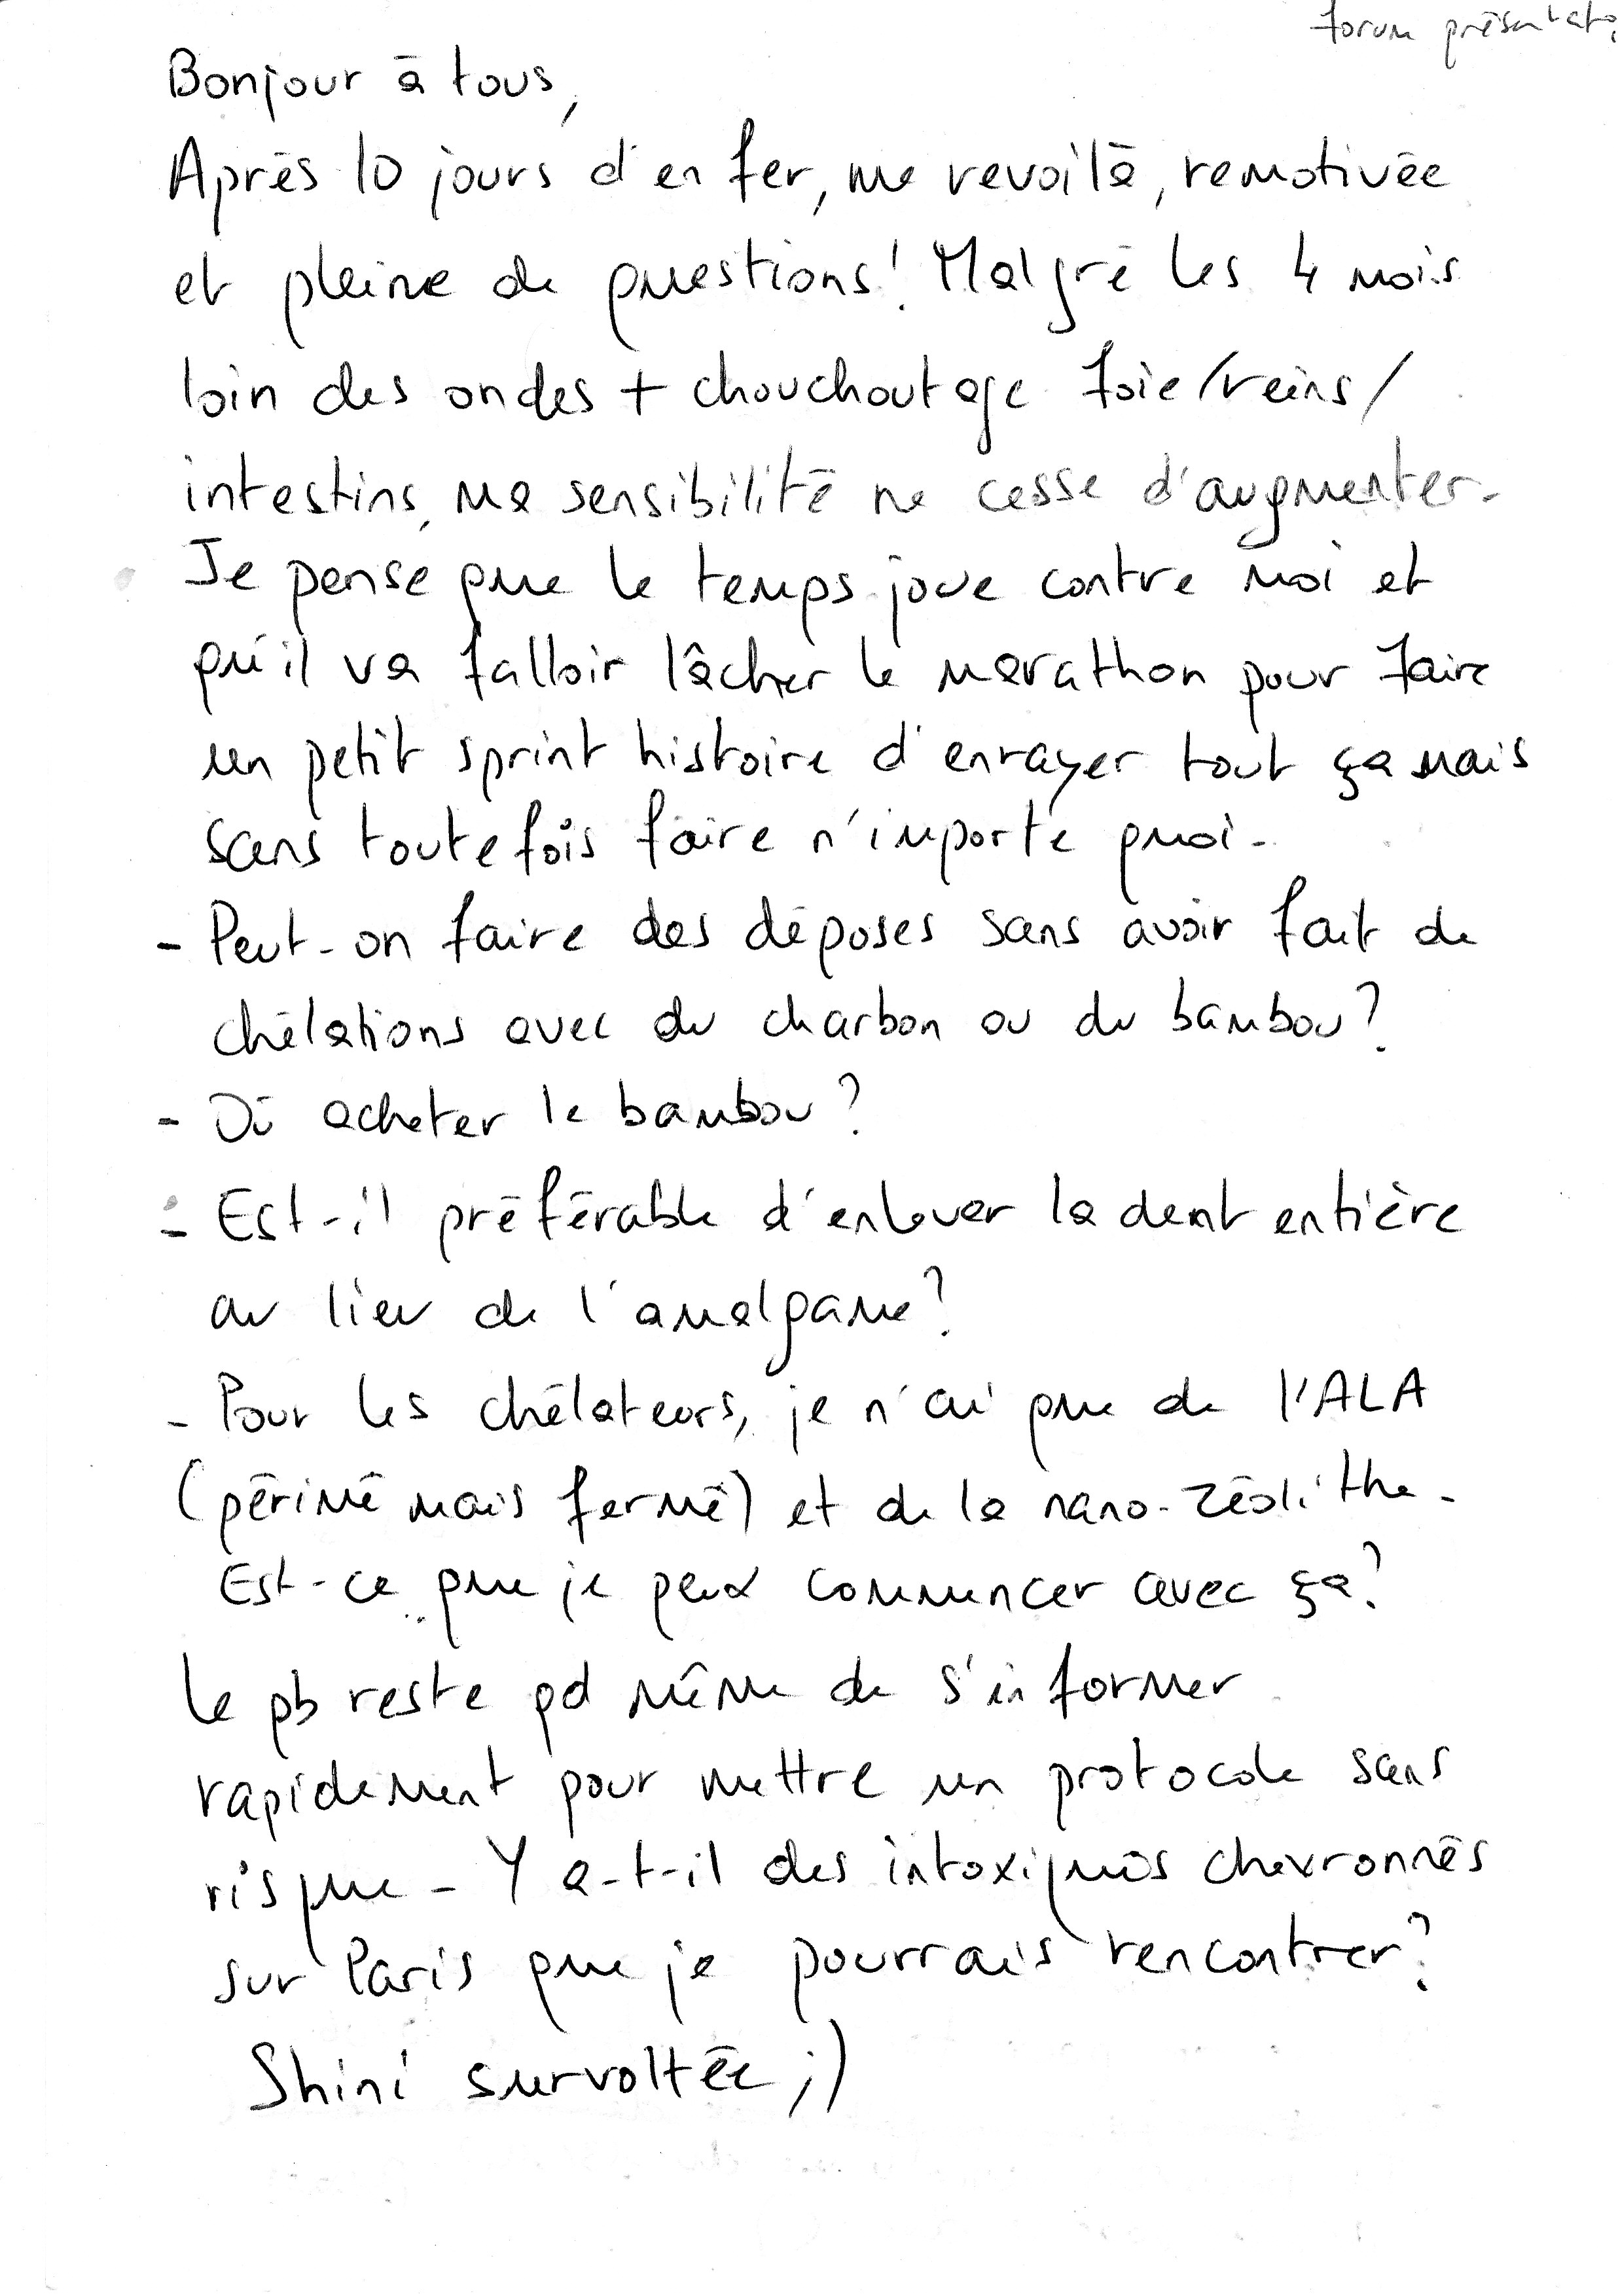 Forum présentat°
Bonjour à tous,
Après 10 jours d'enfer, me revoilà, remotivée
et pleine de questions! Malgré les 4 mois
loin des ondes + chouchoutage foie/reins/
intestins, ma sensibilité ne cesse d'augmenter.
Je pense que le temps joue contre moi et
qu'il va falloir lâcher le marathon pour faire
un petit sprint histoire d'enrayer tout ça mais
sans toutefois faire n'importe quoi.
- Peut-on faire des déposes sans avoir fait de
chélations avec du charbon ou du bambou?
- Où acheter le bambou?
- Est-il préférable d'enlever la dent entière
au lieu de l'amalgame?
- Pour les chélateurs, je n'ai que de l'ALA
(périmé mais fermé) et de la nano-zéolithe.
Est-ce que je peux commencer avec ça?
Le pb reste qd même de s'informer
rapidement pour mettre un protocole sans
risque - Y a-t-il des intoxiqués chevronnés
sur Paris que je pourrais rencontrer?
Shini survoltée ;)